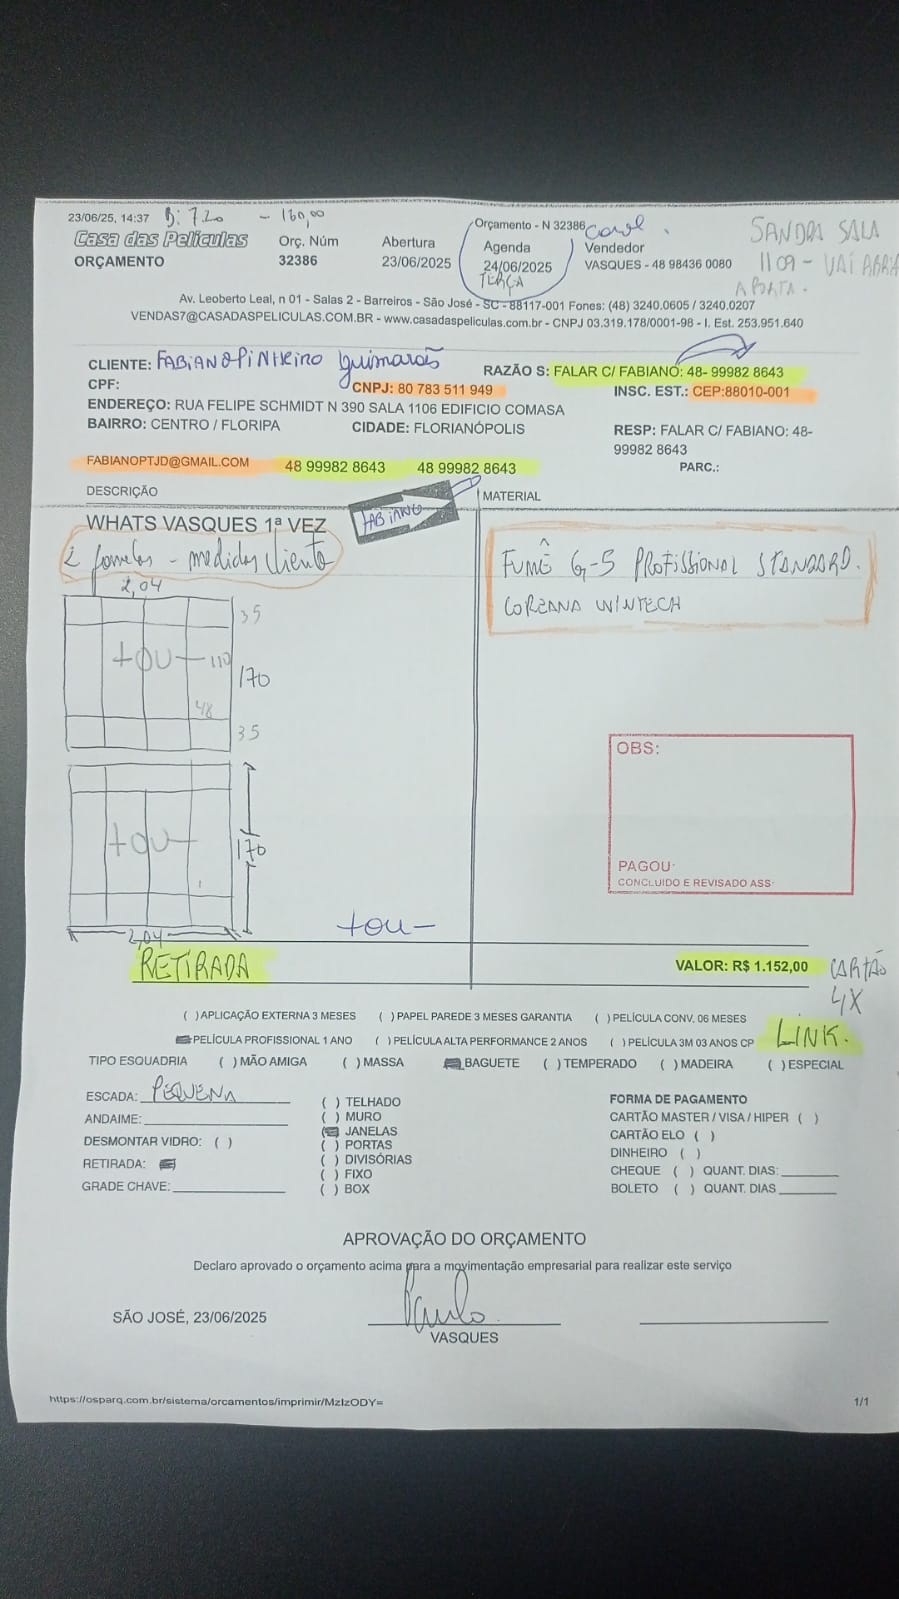 23/06/25, 14:37 B: 7.20 - 160,00
Orçamento - N 32386 Carol
Casa das Películas
ORÇAMENTO
Orç. Núm
32386
Abertura
23/06/2025
Agenda
24/06/2025
TERÇA
Vendedor
VASQUES - 48 98436 0080
SANDRA SALA
1109 - VAI ABRIR
A PORTA.
Av. Leoberto Leal, n 01 - Salas 2 - Barreiros - São José - SC - 88117-001 Fones: (48) 3240.0605 / 3240.0207
VENDAS7@CASADASPELICULAS.COM.BR - www.casadaspeliculas.com.br - CNPJ 03.319.178/0001-98 - I. Est. 253.951.640
CLIENTE: FABIANO PINHEIRO Guimarães
RAZÃO S: FALAR C/ FABIANO: 48- 99982 8643
CPF:
CNPJ: 80 783 511 949
INSC. EST.: CEP:88010-001
ENDEREÇO: RUA FELIPE SCHMIDT N 390 SALA 1106 EDIFICIO COMASA
BAIRRO: CENTRO / FLORIPA
CIDADE: FLORIANÓPOLIS
RESP: FALAR C/ FABIANO: 48-
99982 8643
FABIANOPTJD@GMAIL.COM
48 99982 8643
48 99982 8643
PARC.:
DESCRIÇÃO
MATERIAL
WHATS VASQUES 1ª VEZ
FABIANO
2 janelas - medidas cliente
FUMÊ G-5 PROFISSIONAL STANDARD.
COREANA WINTECH
2,04
35
tou
110
170
48
35
tou
170
2,04
tou
OBS:
PAGOU:
CONCLUIDO E REVISADO ASS:
RETIRADA
VALOR: R$ 1.152,00
CARTÃO
4X
LINK.
( ) APLICAÇÃO EXTERNA 3 MESES ( ) PAPEL PAREDE 3 MESES GARANTIA ( ) PELÍCULA CONV. 06 MESES
PELÍCULA PROFISSIONAL 1 ANO ( ) PELÍCULA ALTA PERFORMANCE 2 ANOS ( ) PELÍCULA 3M 03 ANOS CP
TIPO ESQUADRIA ( ) MÃO AMIGA ( ) MASSA BAGUETE ( ) TEMPERADO ( ) MADEIRA ( ) ESPECIAL
ESCADA: PEQUENA
ANDAIME:
DESMONTAR VIDRO: ( )
RETIRADA:
GRADE CHAVE:
( ) TELHADO
( ) MURO
JANELAS
( ) PORTAS
( ) DIVISÓRIAS
( ) FIXO
( ) BOX
FORMA DE PAGAMENTO
CARTÃO MASTER / VISA / HIPER ( )
CARTÃO ELO ( )
DINHEIRO ( )
CHEQUE ( ) QUANT. DIAS:
BOLETO ( ) QUANT. DIAS
APROVAÇÃO DO ORÇAMENTO
Declaro aprovado o orçamento acima para a movimentação empresarial para realizar este serviço
SÃO JOSÉ, 23/06/2025
Paulo
VASQUES
https://osparq.com.br/sistema/orcamentos/imprimir/MzIzODY=
1/1